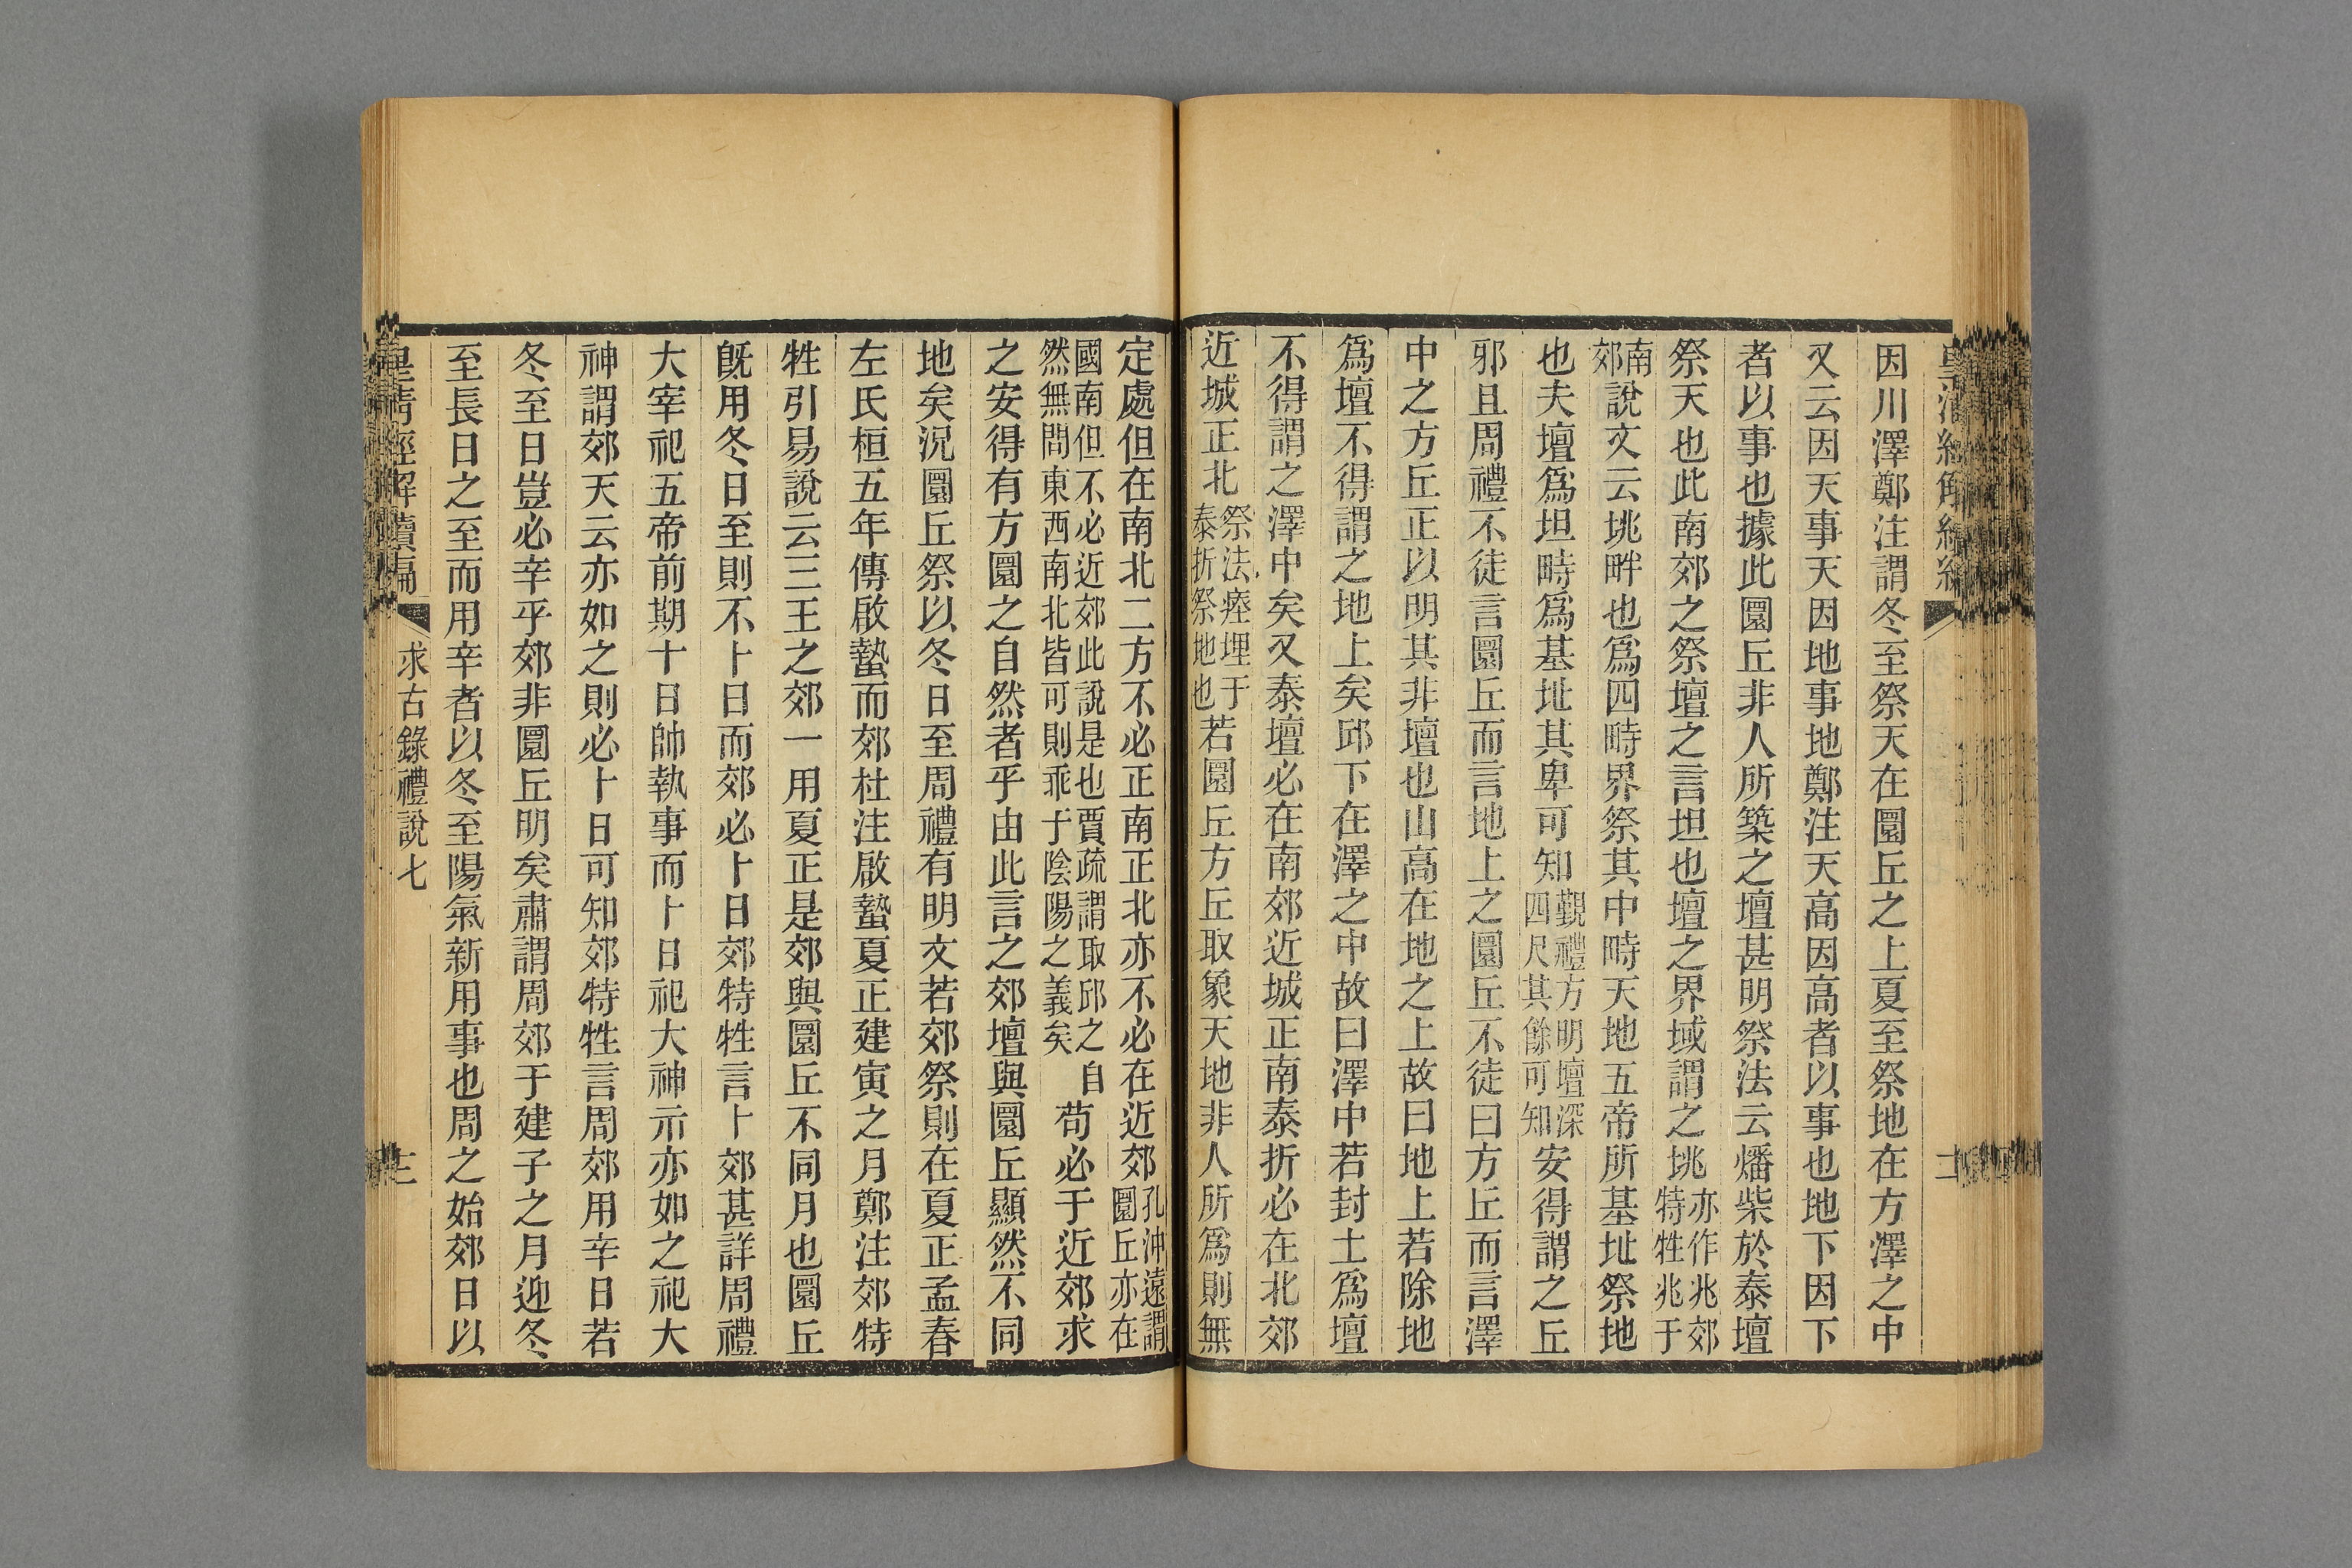 因川澤鄭注謂冬至祭天在圜丘之上夏至祭地在方澤之中
又云因天事天因地事地鄭注天高因高者以事也地下因下
者以事也據此圜丘非人所築之壇甚明祭法云燔柴於泰壇
祭天也此南郊之祭壇之言坦也壇之界域謂之垗亦作兆郊特牲兆于
南郊說文云垗畔也爲四畤界祭其中畤天地五帝所基址祭地
也夫壇爲坦畤爲基址其卑可知覲禮方明壇深四尺其餘可知安得謂之丘
邪且周禮不徒言圜丘而言地上之圜丘不徒曰方丘而言澤
中之方丘正以明其非壇也山高在地之上故曰地上若除地
爲壇不得謂之地上矣邱下在澤之中故曰澤中若封土爲壇
不得謂之澤中矣又泰壇必在南郊近城正南泰折必在北郊
近城正北祭法瘞埋于泰折祭地也若圜丘方丘取象天地非人所爲則無
定處但在南北二方不必正南正北亦不必在近郊孔沖遠謂圜丘亦在
國南但不必近郊此說是也賈疏謂取邱之自然無問東西南北皆可則乖于陰陽之義矣苟必于近郊求
之安得有方圜之自然者乎由此言之郊壇與圜丘顯然不同
地矣況圜丘祭以冬日至周禮有明文若郊祭則在夏正孟春
左氏桓五年傳啟蟄而郊杜注啟蟄夏正建寅之月鄭注郊特
牲引易說云三王之郊一用夏正是郊與圜丘不同月也圜丘
旣用冬日至則不卜日而郊必卜日郊特牲言卜郊甚詳周禮
大宰祀五帝前期十日帥執事而卜日祀大神示亦如之祀大
神謂郊天云亦如之則必卜日可知郊特牲言周郊用辛日若
冬至日豈必辛乎郊非圜丘明矣肅謂周郊于建子之月迎冬
至長日之至而用辛者以冬至陽氣新用事也周之始郊日以
皇清經解續編
求古錄禮說七